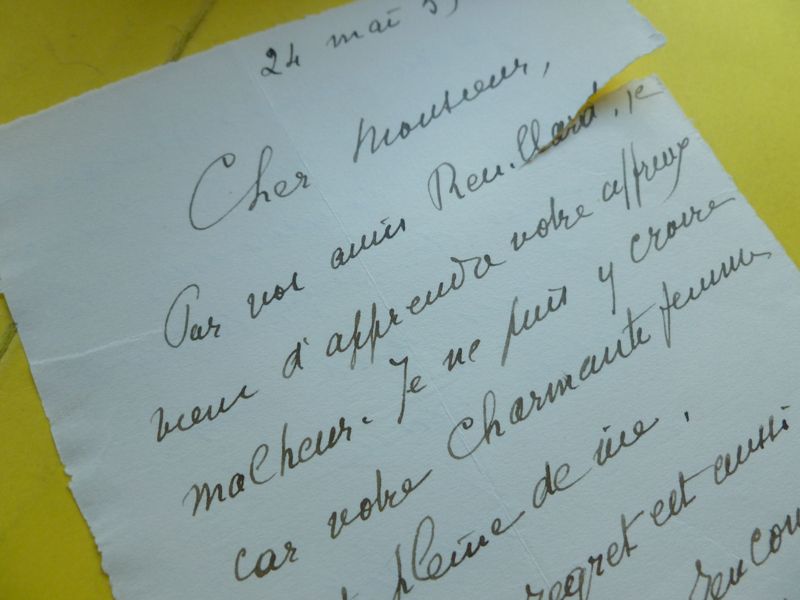 24 mai 5
Cher Monsieur,
Par vos amis Reuillard, je
viens d'apprendre votre affreux
malheur. Je ne puis y croire
car votre charmante femme
pleine de vie,
regret est aussi
rencon